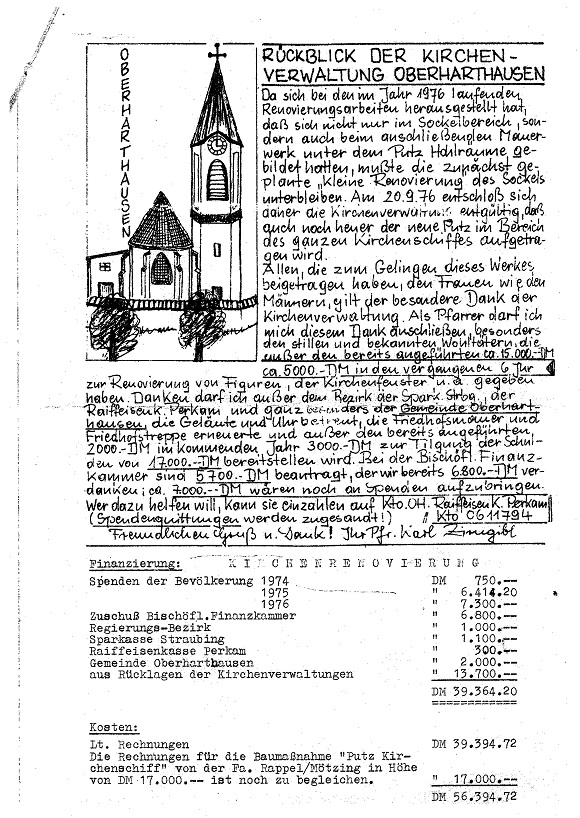 OBERHARTHAUSEN
RÜCKBLICK DER KIRCHEN-
VERWALTUNG OBERHARTHAUSEN
Da sich bei den im Jahr 1976 laufenden
Renovierungsarbeiten herausgestellt hat,
daß sich nicht nur im Sockelbereich, son-
dern auch beim anschließenden Mauer-
werk unter dem Putz Hohlräume ge-
bildet hatten, mußte die zunächst ge-
plante "kleine Renovierung des Sockels
unterbleiben. Am 20.9.76 entschloß sich
daher die Kirchenverwaltung entgültig, daß
auch noch heuer der neue Putz im Bereich
des ganzen Kirchenschiffes aufgetra-
gen wird.
Allen, die zum Gelingen dieses Werkes
beigetragen haben, den Frauen wie den
Männern, gilt der besondere Dank der
Kirchenverwaltung. Als Pfarrer darf ich
mich diesem Dank anschließen, besonders
den stillen und bekannten Wohltätern, die
außer den bereits angeführten ca. 15.000.-DM
ca. 5000.-DM in den vergangenen 6 Jhr
zur Renovierung von Figuren, der Kirchenfenster u.a. gegeben
haben. Danken darf ich außer dem Bezirk der Spark. Strbg., der
Raiffeisenk. Perkam und ganz besonders der Gemeinde Oberhart-
hausen, die Geläute und Uhr betreut, die Friedhofsmauer und
Friedhofstreppe erneuerte und außer den bereits angeführten
2000.-DM im kommenden Jahr 3000.-DM zur Tilgung der Schul-
den von 17.000.-DM bereitstellen wird. Bei der Bischöfl. Finanz-
kammer sind 5700.-DM beantragt, der wir bereits 6.800.-DM ver-
danken; ca. 7000.--DM wären noch an Spenden aufzubringen.
Wer dazu helfen will, kann sie einzahlen auf Kto.OH. Raiffeisen K. Perkam
(Spendenquittungen werden zugesandt!) Kto 0611794
Freundlichen Gruß u. Dank! Ihr Pfr. Karl
Finanzierung: KIRCHENRENOVIERUNG
Spenden der Bevölkerung 1974 DM 750.--
1975 " 6.414.20
1976 " 7.300.--
Zuschuß Bischöfl.Finanzkammer " 6.800.--
Regierungs-Bezirk " 1.000.--
Sparkasse Straubing " 1.100.--
Raiffeisenkasse Perkam " 300.--
Gemeinde Oberharthausen " 2.000.--
aus Rücklagen der Kirchenverwaltungen " 13.700.--
DM 39.364.20
============
Kosten:
Lt. Rechnungen DM 39.394.72
Die Rechnungen für die Baumaßnahme "Putz Kir-
chenschiff" von der Fa. Rappel/Mötzing in Höhe
von DM 17.000.-- ist noch zu begleichen. " 17.000.--
DM 56.394.72